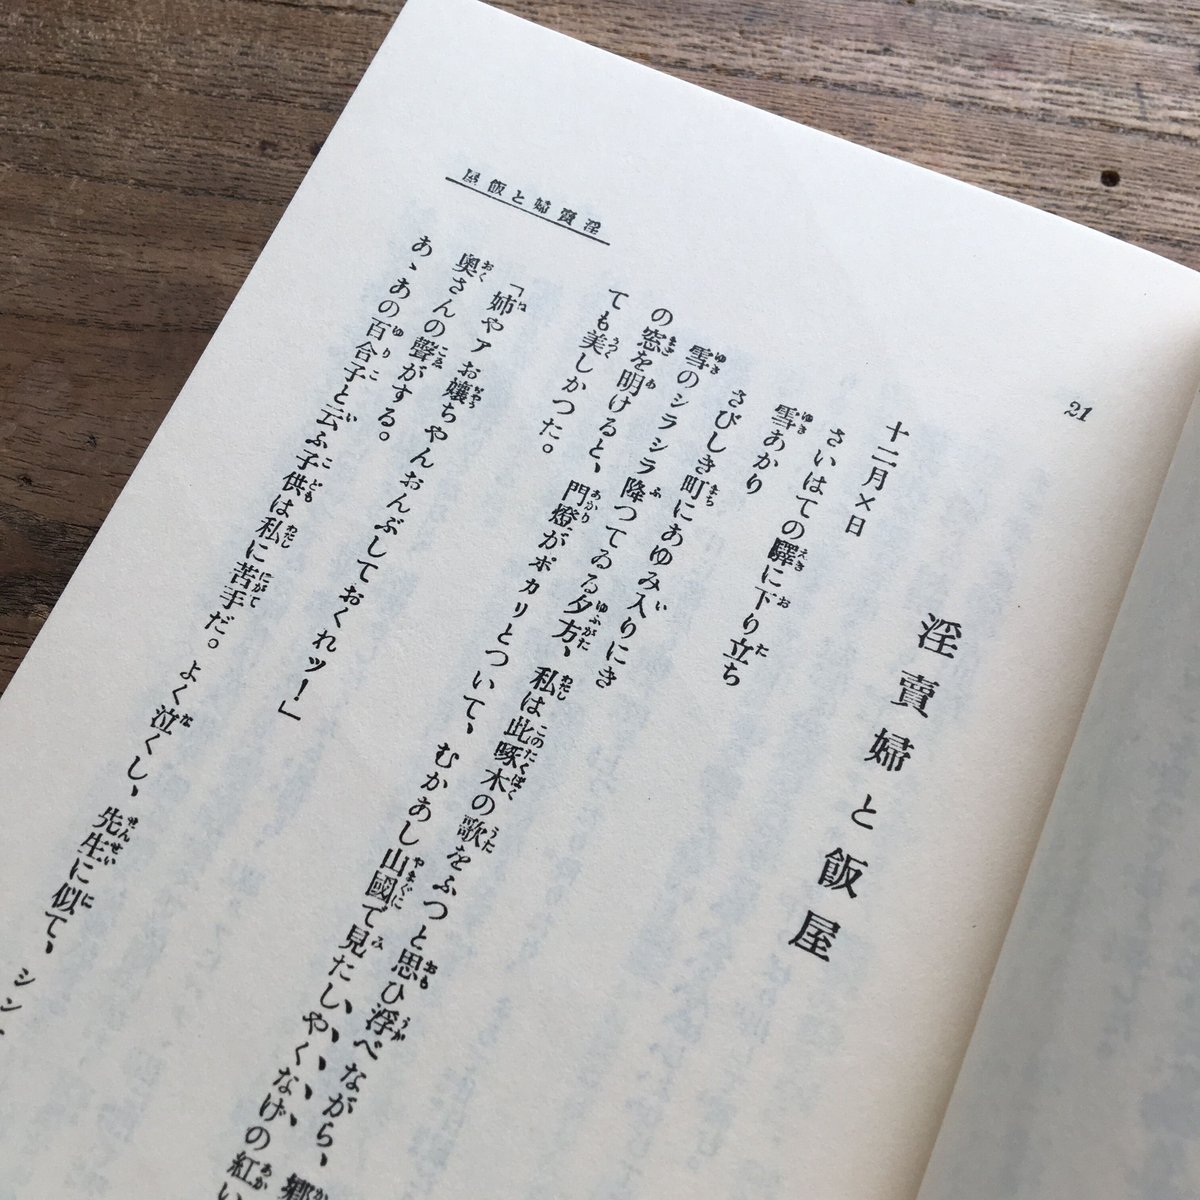 21
淫賣婦と飯屋
淫賣婦と飯屋
十二月×日
さいはての驛に下り立ち
雪あかり
さびしき町にあゆみ入りにき
雪のシラシラ降つてゐる夕方、私は此啄木の歌をふつと思ひ浮べながら、郷
の窓を明けると、門燈がポカリとついて、むかあし山國で見たしやくなげの紅い
ても美しかつた。
「姉やァお孃ちやんおんぶしておくれッ！」
奥さんの聲がする。
あゝあの百合子と云ふ子供は私に苦手だ。よく泣くし、先生に似て、シン